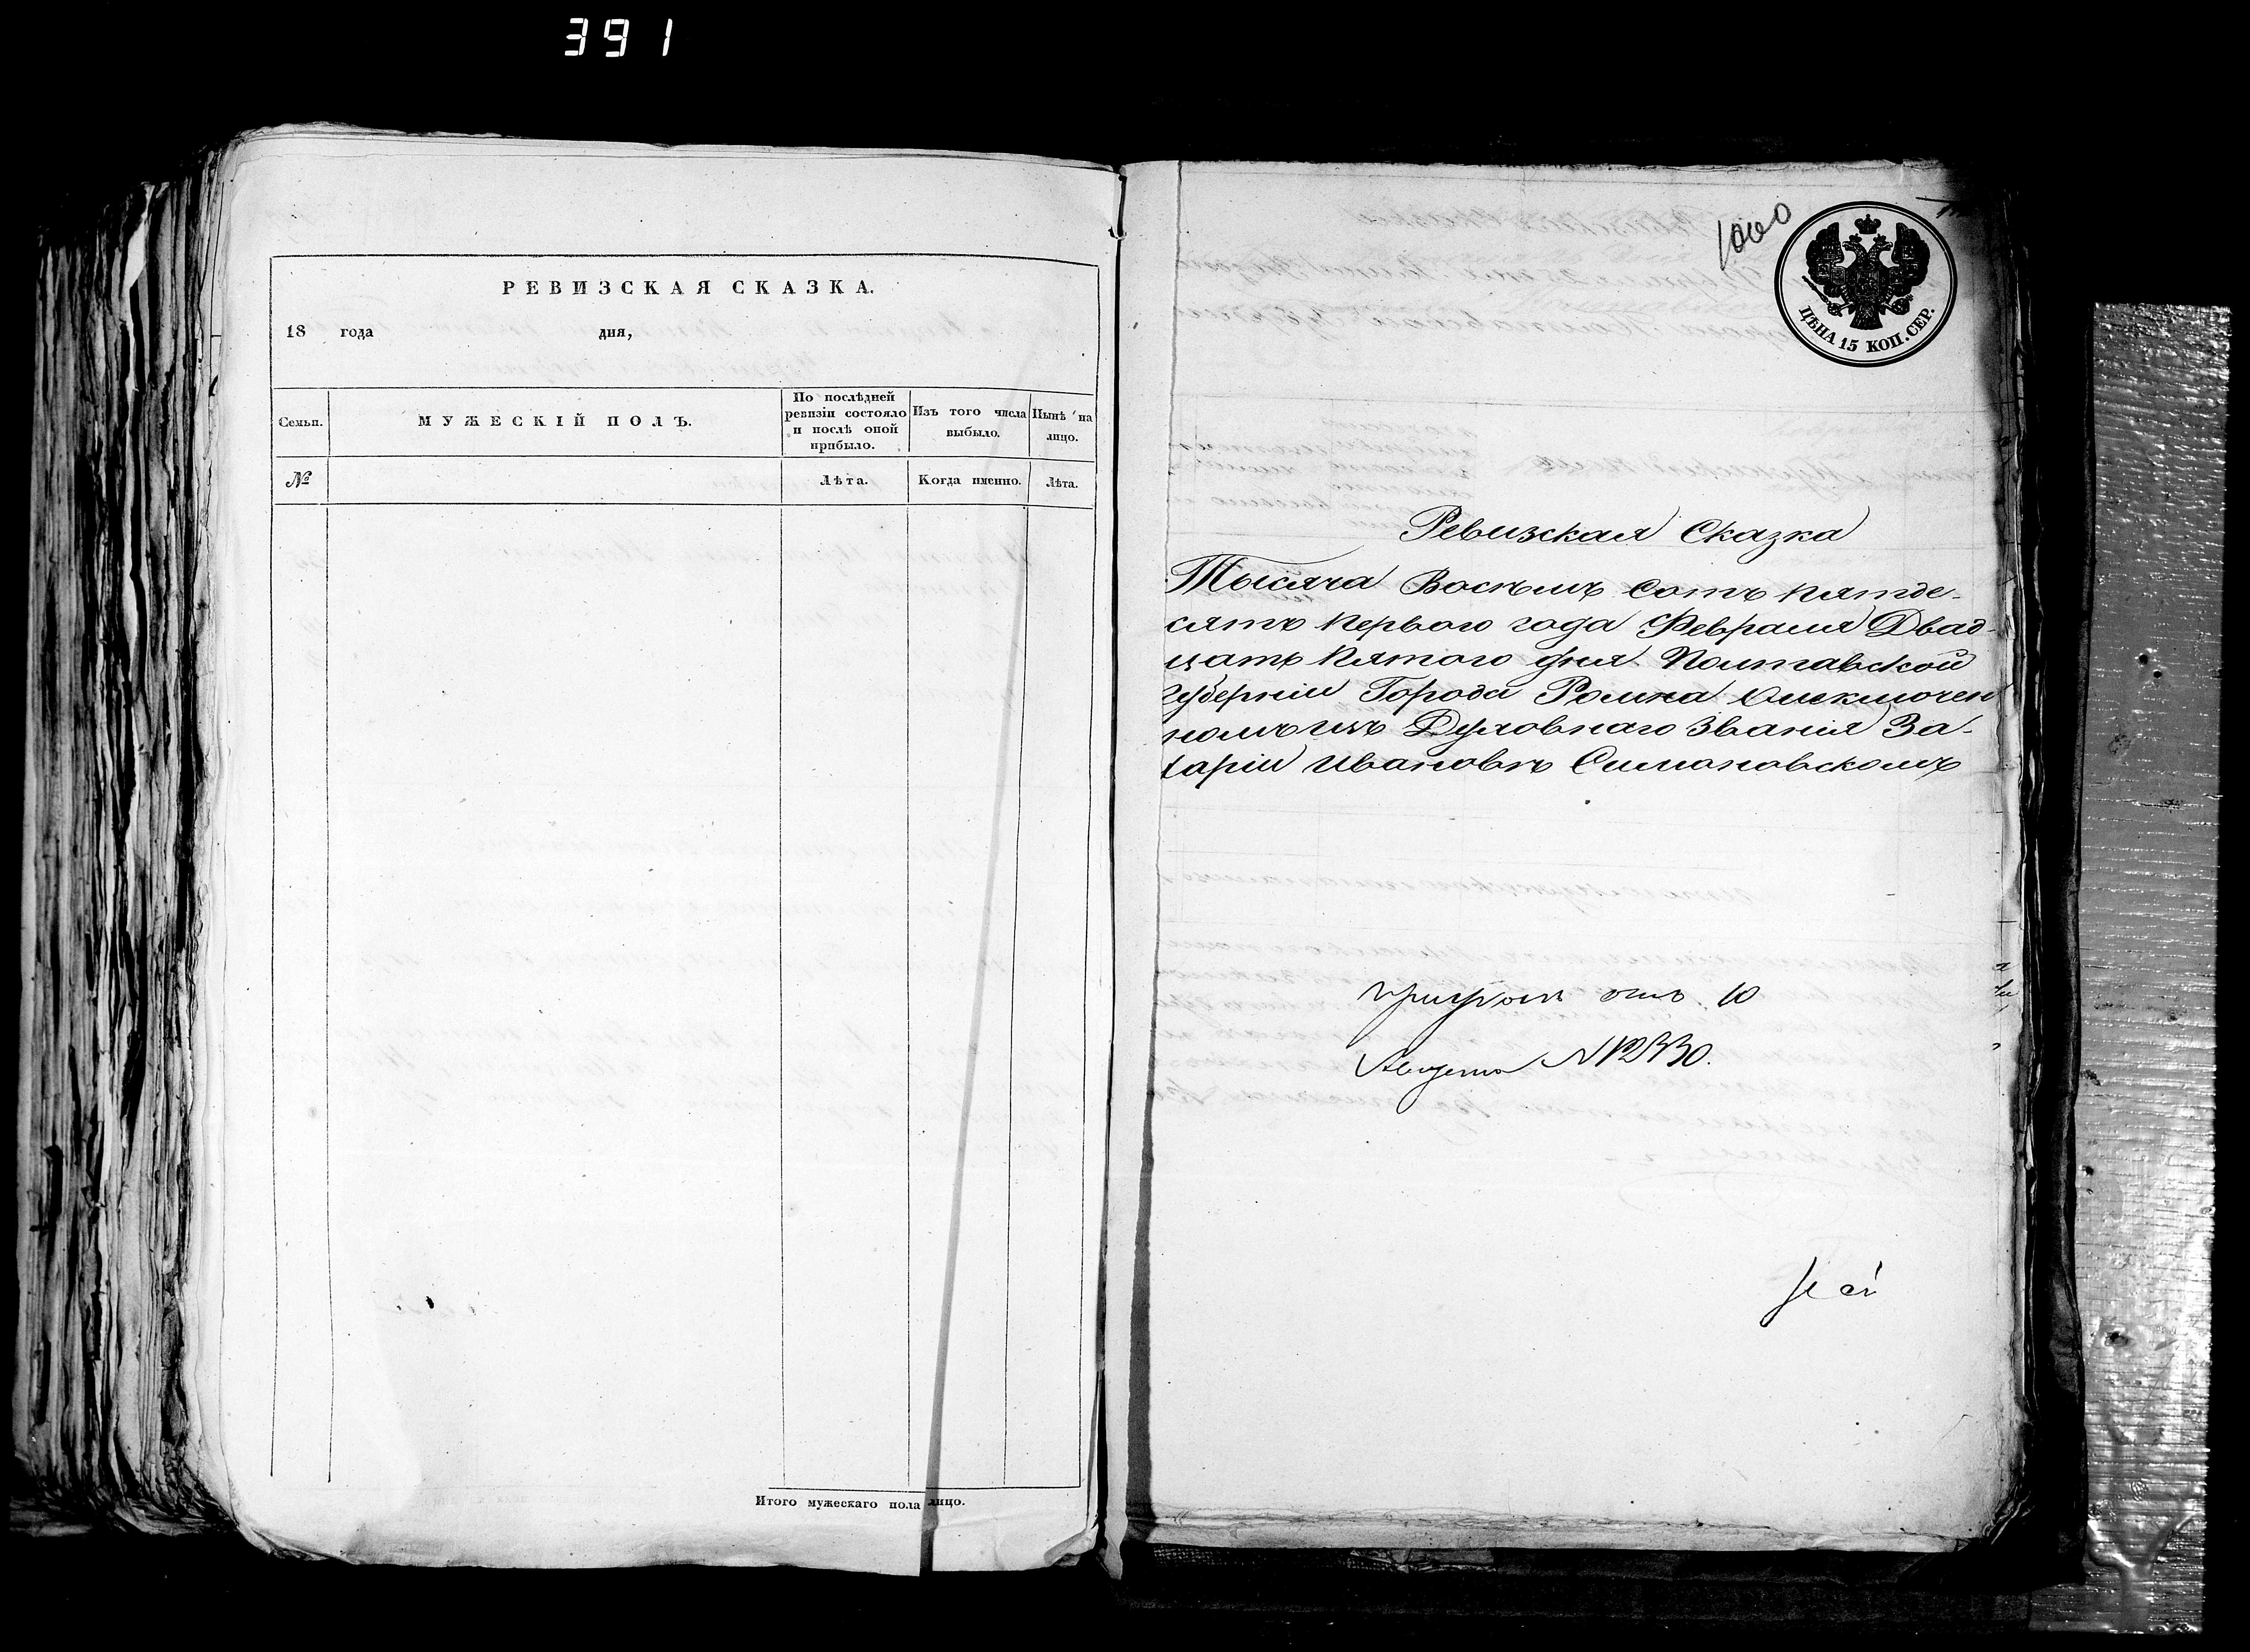 391
РЕВИЗСКАЯ СКАЗКА.
18 года дня,
Семьи.
МУЖЕСКІЙ ПОЛЪ.
По послѣдней
ревизіи состояло
и послѣ оной
прибыло.
Изъ того числа
выбыло.
Нынѣ на
лицо.
№
Лѣта.
Когда именно.
Лѣта.
Итого мужескаго пола лицо.
1060
ЦѢНА 15 КОП. СЕР.
Ревизская Сказка
Тысяча Восемь Сотъ Пятде-
сятъ Первого года Февраля Двад-
цать Пятого дня Полтавской
Губерніи Города Ромна
изъ Духовнаго Званія За-
харіи Ивановѣ Симоновскомъ
10
Августа N